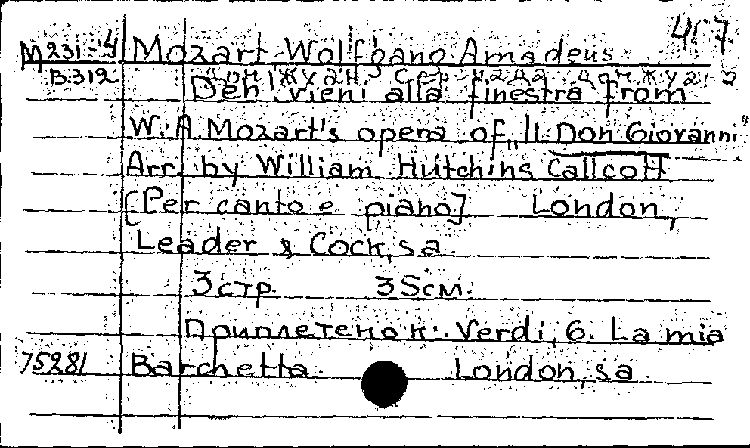 407
M231-4 Mozart Wolfgang Amadeus
B.312
Deh, vieni alla finestra from
W.A. Mozart's opera of „Il Don Giovanni"
Arr. by William Hutchins Callcott
[Per canto e piano] London,
Leader & Cock, s.a.
3 стр. 35 см.
Приплетено к: Verdi, G. La mia
75281 Barchetta. London, s.a.